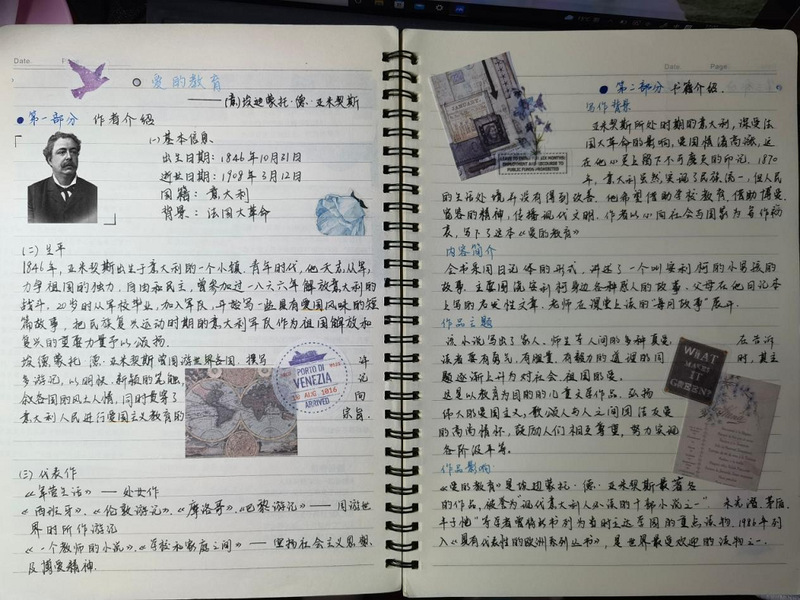 Date.
爱的教育
——(意)埃迪蒙托·德·亚米契斯
●第一部分 作者介绍
(一)基本信息
出生日期:1846年10月21日
逝世日期:1908年3月12日
国籍:意大利
背景:法国大革命
(二)生平
1846年,亚米契斯出生于意大利的一个小镇.青年时代,他矢志从军,
力争祖国的独力,自由和民主,曾参加过一八六六年解放意大利的
战斗。20岁时从军校毕业,加入军队,开始写一些具有爱国风味的短
篇故事,把民族复兴运动时期的意大利军队作为祖国解放和
复兴的重要力量予以颂扬.
埃德蒙托·德·亚米契斯曾周游世界各国,撰写 许
多游记,以明快,新颖的笔触, 记
叙各国的风土人情,同时贯穿了 向
意大利人民进行爱国主义教育的 宗旨.
PORTO DI
VENEZIA
ARRIVED
(三)代表作
《军营生活》——处女作
《西班牙》、《伦敦游记》、《摩洛哥》、《巴黎游记》——周游世
界时所作游记
《一个教师的小说》、《学校和家庭之间》——宣扬社会主义思想,
及博爱精神.
Date. Page.
●第二部分 书籍介绍.
JANUARY.
写作背景
亚米契斯所处时期的意大利,深受法
国大革命的影响,爱国情潮高涨,这
在他心灵上留下不可磨灭的印记.1870
年,意大利虽然实现了民族统一,但人民
的生活处境并没有得到改善.他希望借助学校教育,借助博爱,
宽容的精神,传播现代文明.作者以小向社会与国家为写作初
衷,写下了这本《爱的教育》
内容简介
全书采用日记体的形式,讲述了一个叫安利柯的小男孩的
故事.主要围绕安利柯身边各种感人的故事,父母在他日记本
上写的启发性文章,老师在课堂上读的"每月故事"展开.
作品主题
该小说写出了家人、师生等人间的多种真爱, 在告诉
读者要有勇气,有胆量,有毅力的道理的同 时,其主
题逐渐上升为对社会、祖国的爱.
这是以教育为目的的儿童文学作品,弘扬
伟大的爱国主义,歌颂人与人之间团结友爱
的高尚情怀,鼓励人们相互尊重,努力实现
各阶级平等.
WHAT
MAKES
IT
GREEN?
作品影响
《爱的教育》是埃迪蒙托·德·亚米契斯最著名
的作品,被誉为"现代意大利人必读的十部小说之一".朱光潜、茅盾、
丰子恺等学者曾将此书列为当时立达学园的重点读物.1986年列
入《具有代表性的欧洲系列丛书》,是世界最受欢迎的读物之一.